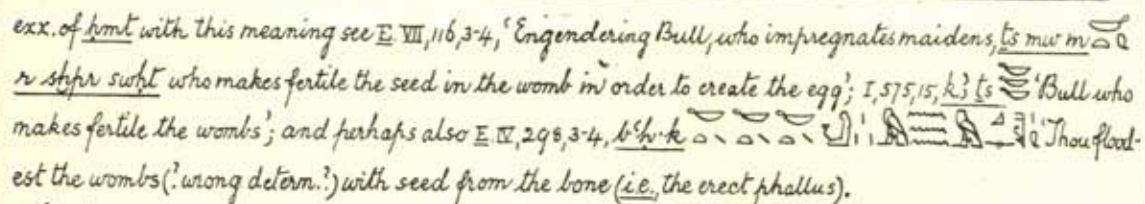 exx. of ḥmt with this meaning see E. VII, 116, 3-4, 'Engendering Bull, who impregnates maidens, ṯs mw m
r sḫpr swḥt who makes fertile the seed in the womb in order to create the egg'; I, 575, 15, kꜣ ṯs 'Bull who
makes fertile the wombs'; and perhaps also E. IV, 298, 3-4, bꜥḥ·k 'Thou flood-
est the wombs (? wrong determ.?) with seed from the bone (i.e., the erect phallus).